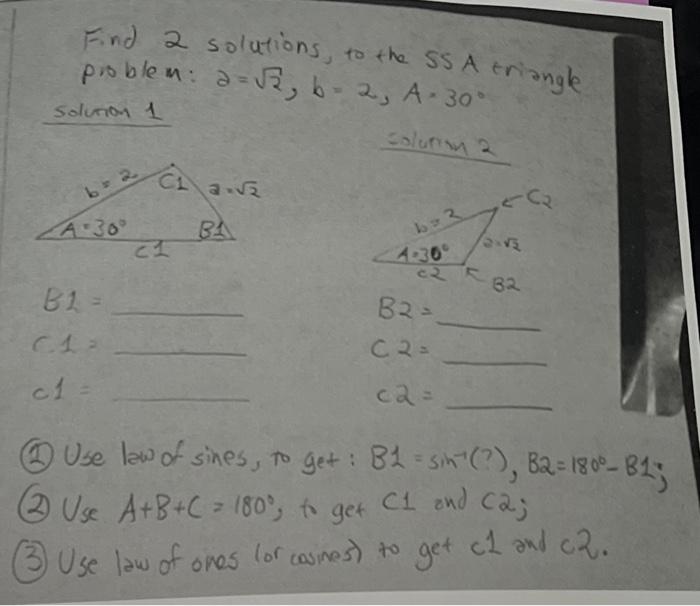 Find 2 solutions, to the SSA triangle
problem: a=√2, b=2, A=30°
solution 1
solution 2
b=2
C1
a=√2
A=30°
B1
c1
C2
b=2
a=√2
A=30°
c2
B2
B1 =
C1 =
c1 =
B2 =
C2 =
c2 =
① Use law of sines, to get: B1 = sin⁻¹(?), B2=180°-B1;
② Use A+B+C=180°, to get C1 and C2;
③ Use law of ones (or cosines) to get c1 and c2.